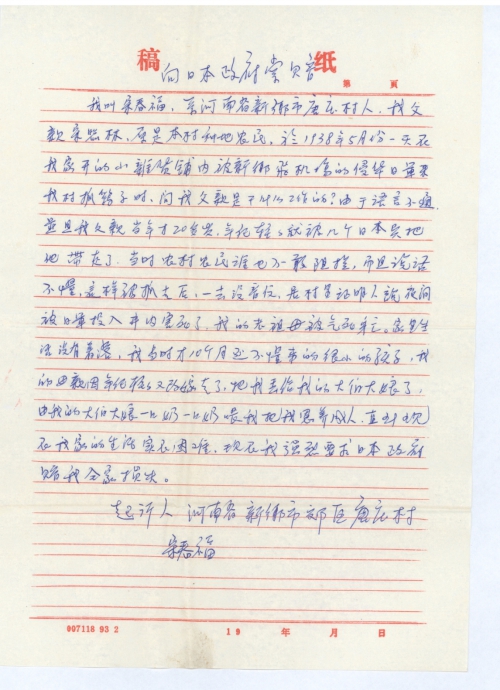 稿 纸
向日本政府索赔
第 頁
我叫宋春福，系河南省新乡市唐庄村人，我父
亲宋思林，原是本村种地农民，於1938年5月份一天在
我家开的小杂货铺内被新乡飞机场的侵华日军来
我村抓鸽子时，问我父亲是干什么工作的？由于语言不通，
并且我父亲当年才20多岁，年纪轻轻就被几个日本兵把
他带走了，当时农村农民谁也不敢阻拦，而且说话
不懂，这样被抓去后，一去没音信，后村里证明人说夜间
被日军投入井内害死了，我的老祖母被气死，家里生
活没有着落，我当时才10个月还不懂事的很小的孩子，我
的母亲因年纪轻又改嫁走了，把我丢给我的大伯大娘了，
由我的大伯大娘一口奶一口奶喂我把我恩养成人，直到现
在我家的生活实在困难，现在我强烈要求日本政府
赔我全家损失。
起诉人 河南省新乡市郊区唐庄村
宋春福
007118 93 2
19 年 月 日